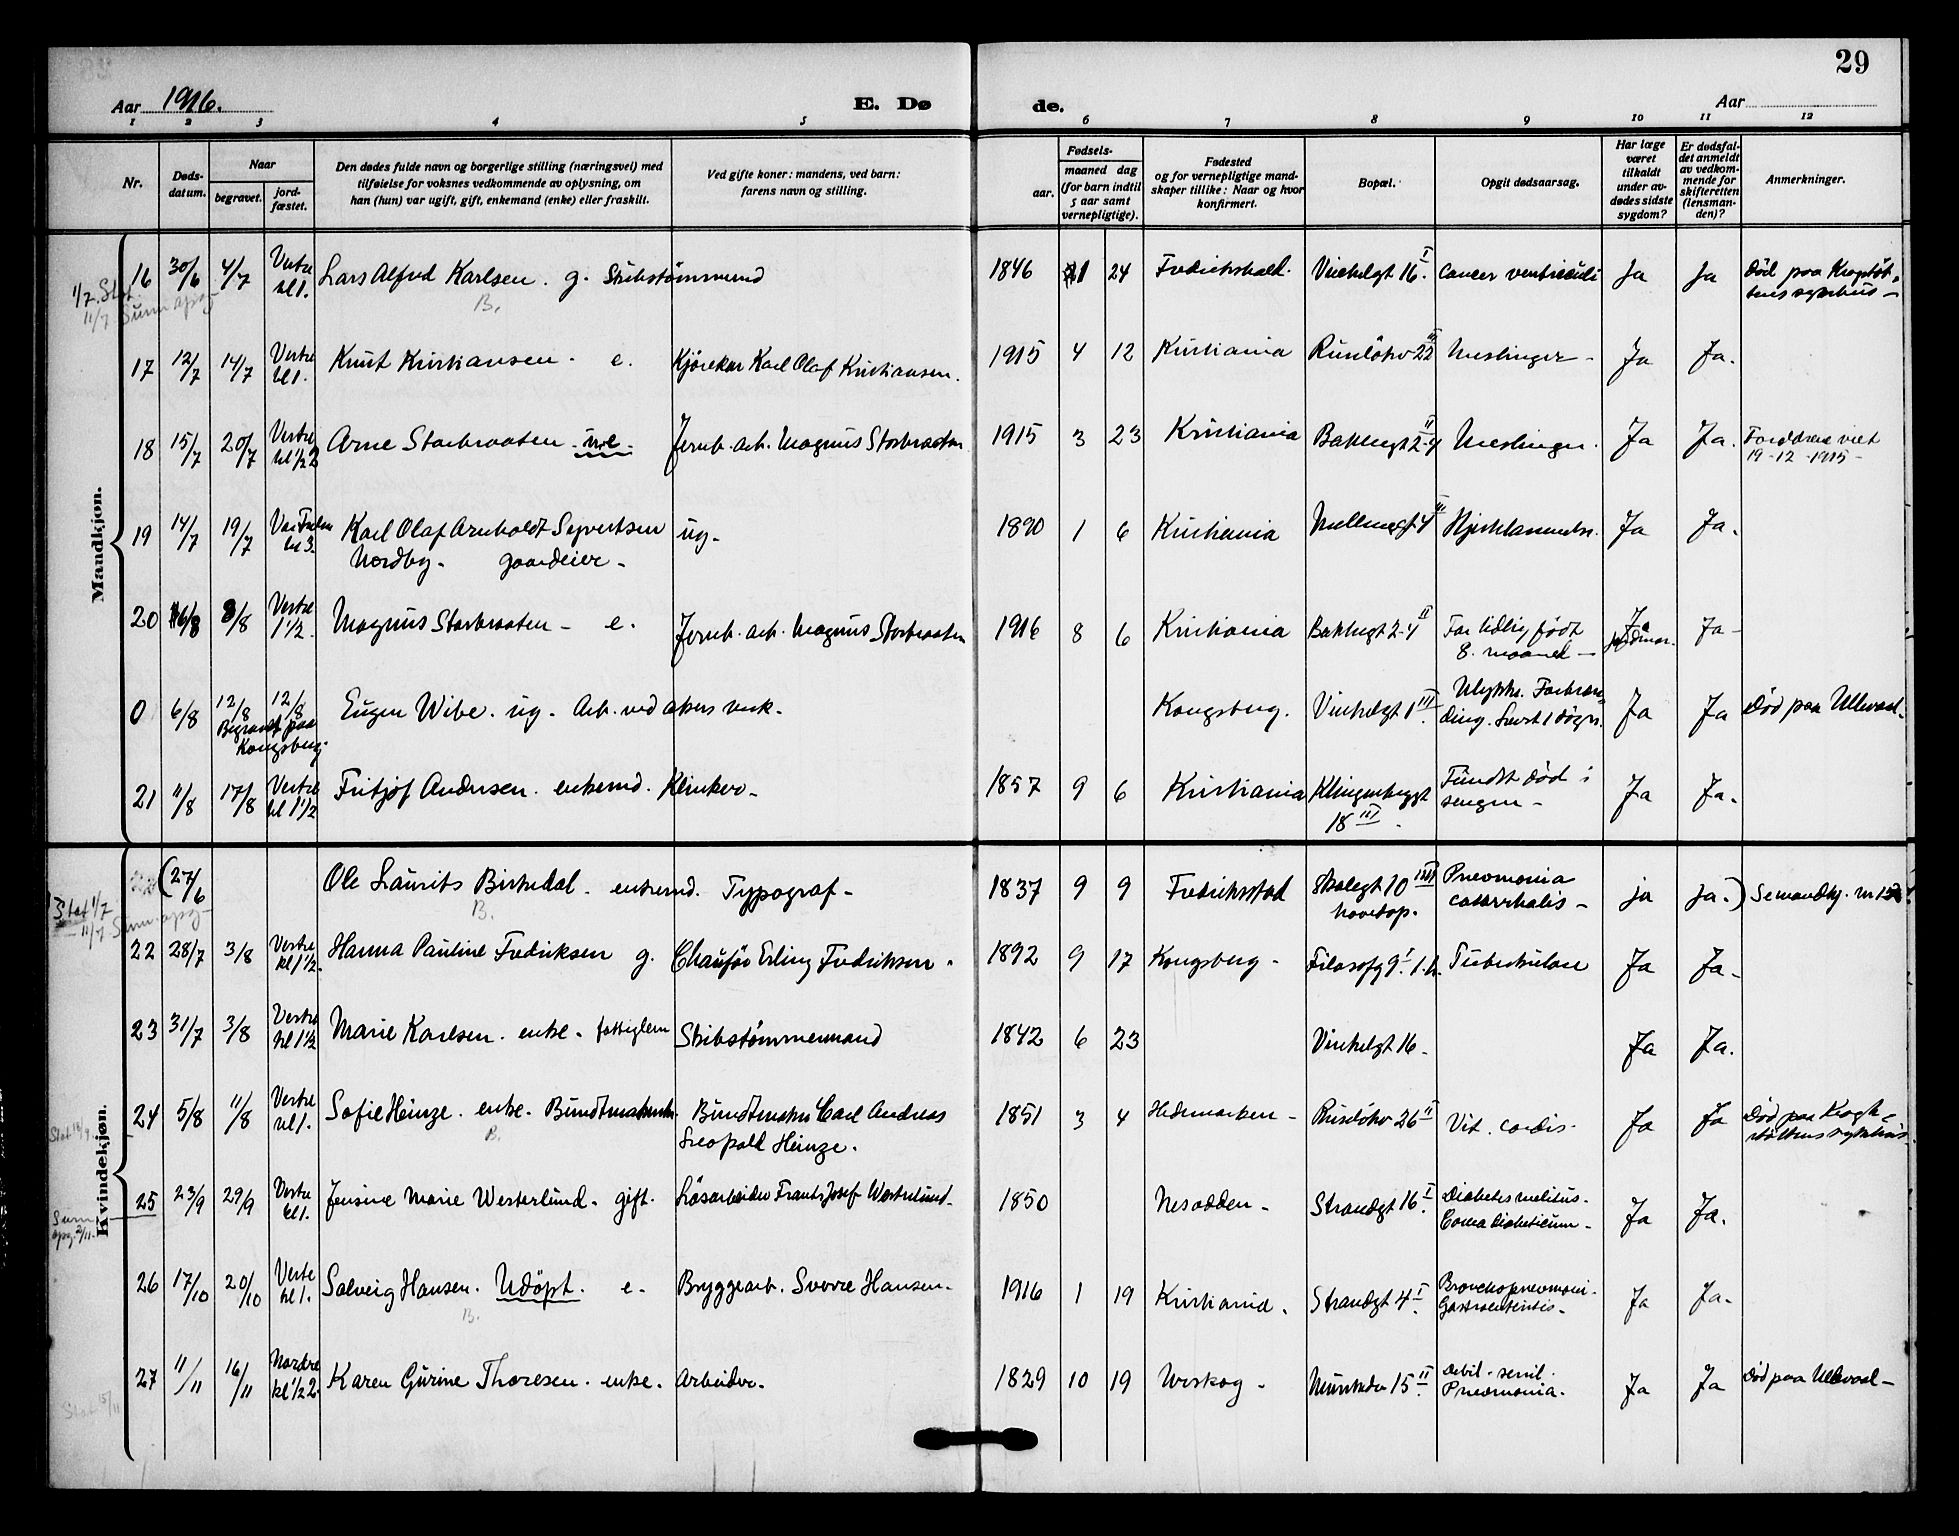 29
Aar 1916.
E. Dø
de.
Aar
1 2 3 4 5 6 7 8 9 10 11 12
Nr.
Døds-
datum.
Naar
begravet.
jord-
fæstet.
Den dødes fulde navn og borgerlige stilling (næringsvei) med
tilføielse for voksnes vedkommende av oplysning, om
han (hun) var ugift, gift, enkemand (enke) eller fraskilt.
Ved gifte koner: mandens, ved barn:
farens navn og stilling.
Fødsels-
aar.
maaned dag
(for barn indtil
5 aar samt
vernepligtige).
Fødested
og for vernepligtige mand-
skaper tillike: Naar og hvor
konfirmert.
Bopæl.
Opgit dødsaarsag.
Har læge
været
tilkaldt
under av-
dødes sidste
sygdom?
Er dødsfal-
det anmeldt
av vedkom-
mende for
skifteretten
(lensman-
den)?
Anmerkninger.
Mandkjøn.
16 30/6 4/7 Vestre kl 1. Lars Alfred Karlsen. g. Skibstömmermd 1846 24 Fredrikshald. Vinkelgt 16 I. Cancer ventriculi Ja Ja Död paa Krogstöt-
tens sykehus –
B.
1/7. Stat
11/7 Sum opg
17 12/7 14/7 Vestre kl 1. Knut Kristiansen. e. Kjörekar Karl Olaf Kristiansen. 1915 4 12 Kristiania Ruselökv 22 III Meslinger – Ja Ja.
18 15/7 20/7 Vestre kl 1/2 2 Arne Storbraaten. Jernb. arb. Magnus Storbraaten 1915 3 23 Kristiania Bakkegt 2-4 II Meslinger. Ja Ja. Foreldrene viet
19-12-1915–
19 14/7 19/7 Vor Frelser kl 3. Karl Olaf Arnholdt Sejvertsen ug. 1890 1 6 Kristiania 4 II Ja Ja.
Nordby. gaardeier.
20 6/8 8/8 Vestre 1 1/2. Magnus Storbraaten – e. Jernb. arb. Magnus Storbraaten 1916 8 6 Kristiania Bakkegt 2-4 II For tidlig født
8. maaned – Ja
jordmor. Ja –
0 6/8 12/8 12/8 Eugen Wibe. ug. Arb. ved akers verk. Kongsberg. Vinkelgt 1 III. Ulykke. Forbræn-
ding. Levet 1 døgn. Ja Ja Död paa Ullevaal.
Begravet paa
Kongsberg.
21 11/8 17/8 Vestre kl 1 1/2 Fritjof Andersen. enkemd. Klinker – 1857 9 6 Kristiania Klingenberggt
18 III. Fundet död i
sengen – Ja Ja.
Kvindekjøn.
(27/6 Ole Laurits Birkedal. enkemd. Typograf – 1837 9 9 Fredrikstad Skolegt 10
hovedop. Pneumonia
catarrhalis – ja ja.) Se mandkj. nr 15
B.
Stat 1/7
11/7 Sum opg
22 28/7 3/8 Vestre kl 1 1/2. Hanna Pauline Fredriksen g. Chauför Erling Fredriksen. 1892 9 17 Kongsberg – Filosofg 9 I. Tuberkulose Ja Ja –
23 31/7 3/8 Vestre kl 1 1/2 Marie Karlsen. enke. fattiglem Skibstömmermand 1842 6 23 Vinkelgt 16 – Ja Ja.
24 5/8 11/8 Vestre kl 1. Sofie Heinze. enke. Bundtmaker Carl Andreas
Leopold Heinze. 1851 3 4 Hedemarken – Ruselökv 26 II Vit. cordis. Ja Ja Död paa Krogh-
stöttens sykehus.
B.
25 23/9 29/9 Vestre kl 1. Jensine Marie Westerlund. gift. Lösarbeider Frants Josef Westerlund. 1850 Nesodden – Strandgt 16 I. Diabetes melitus.
Coma diabeticum – Ja Ja.
Sum
opg 2/11.
26 17/10 20/10 Vestre kl 1. Solveig Hansen. Udöpt. e. Bryggearb. Sverre Hansen. 1916 1 19 Kristiania. Strandgt 4 I. Bronchopneumoni.
Gastroenteritis – Ja Ja.
B.
27 11/11 16/11 Nordre kl 1/2 2. Karen Gurine Thoresen. enke. Arbeider. 1829 10 19 Urskog – Munkedv 15 II. Debil. senil.
Pneumonia. Ja Ja Död paa Ullevaal –
Stat 15/11